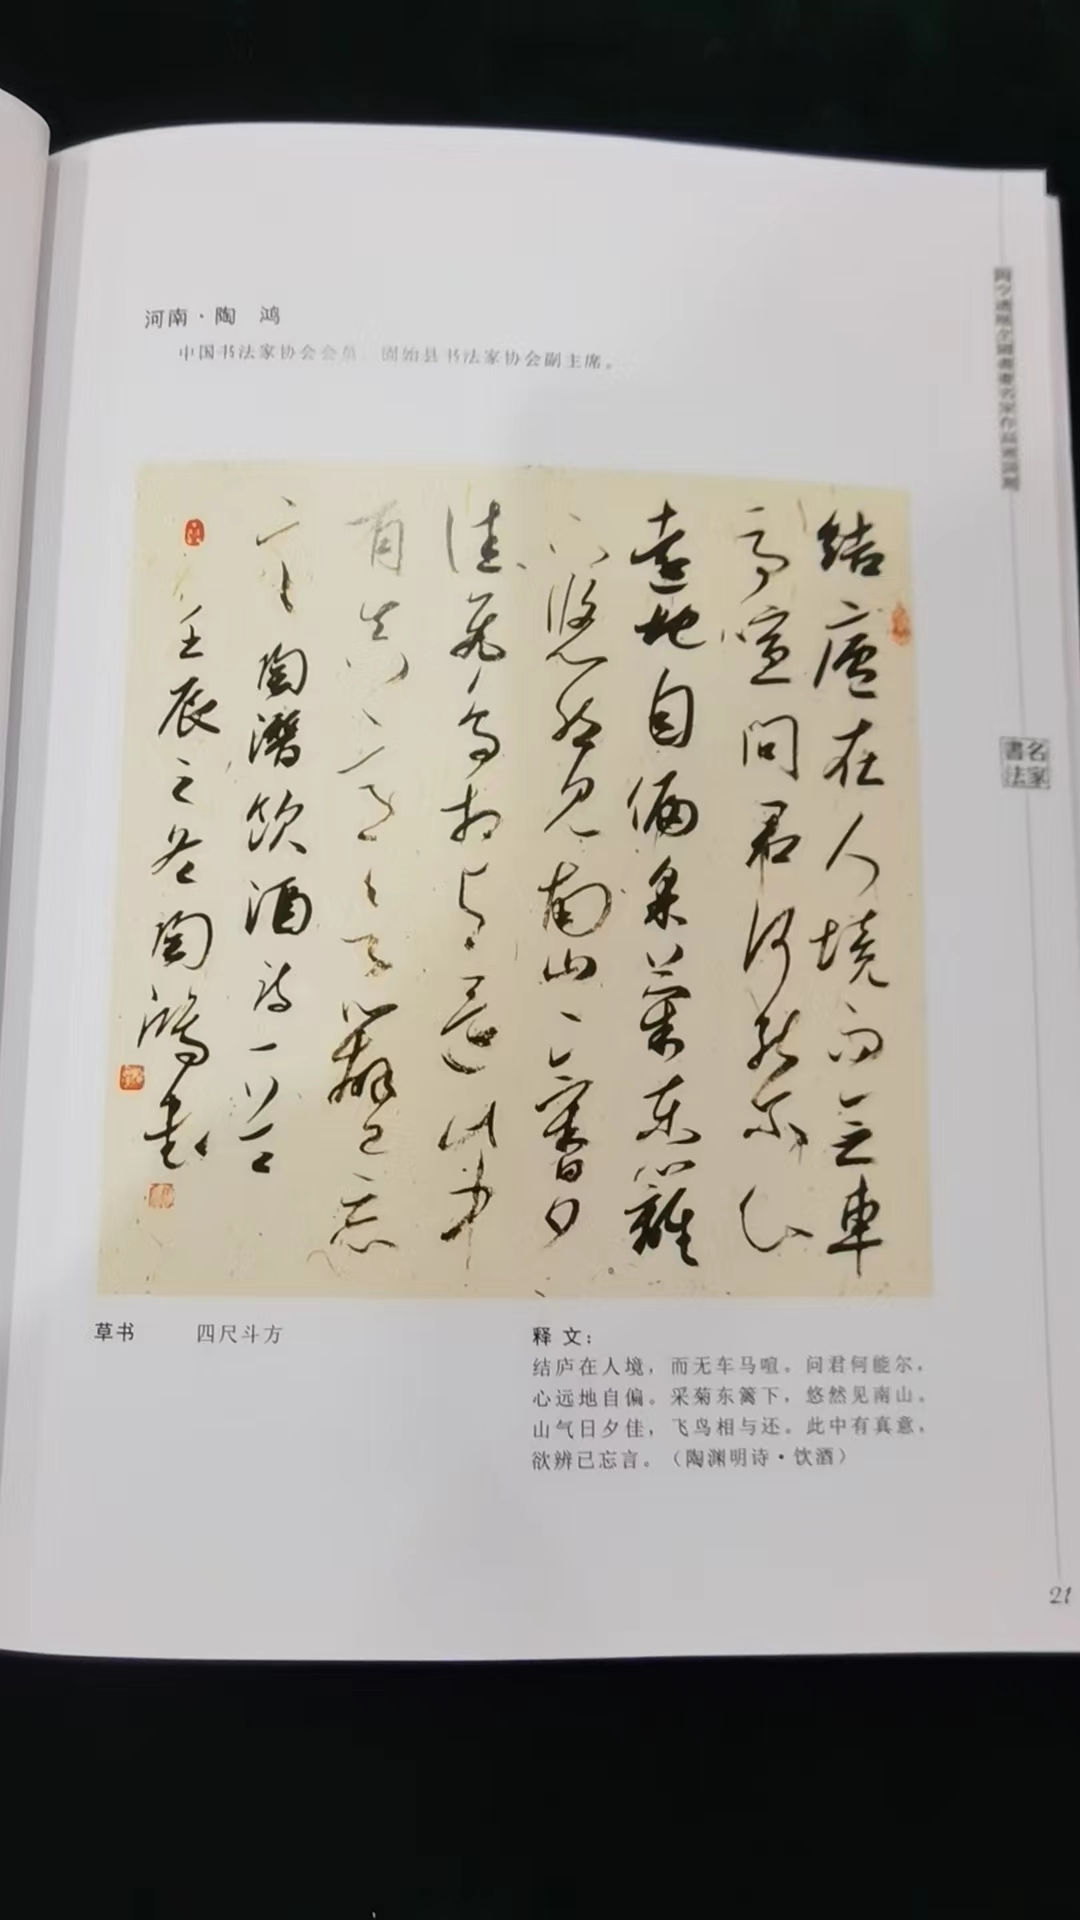 河南·陶 鸿
中国书法家协会会员、固始县书法家协会副主席。
结庐在人境而无车
马喧问君何能尔心
远地自偏采菊东篱
下悠然见南山山气日夕
佳飞鸟相与还此中
有真意欲辨已忘
言 陶潜饮酒诗一首
壬辰之冬陶鸿书
草书 四尺斗方
释 文：
结庐在人境，而无车马喧。问君何能尔，
心远地自偏。采菊东篱下，悠然见南山。
山气日夕佳，飞鸟相与还。此中有真意，
欲辨已忘言。（陶渊明诗·饮酒）
書法名家
21